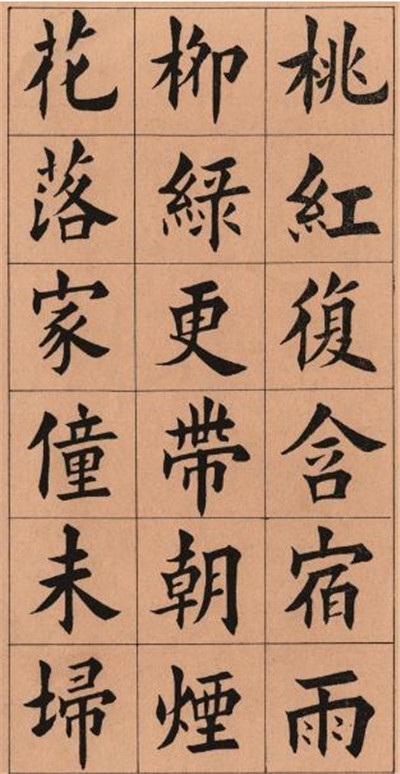 桃紅復含宿雨
柳綠更帶朝煙
花落家僮未埽